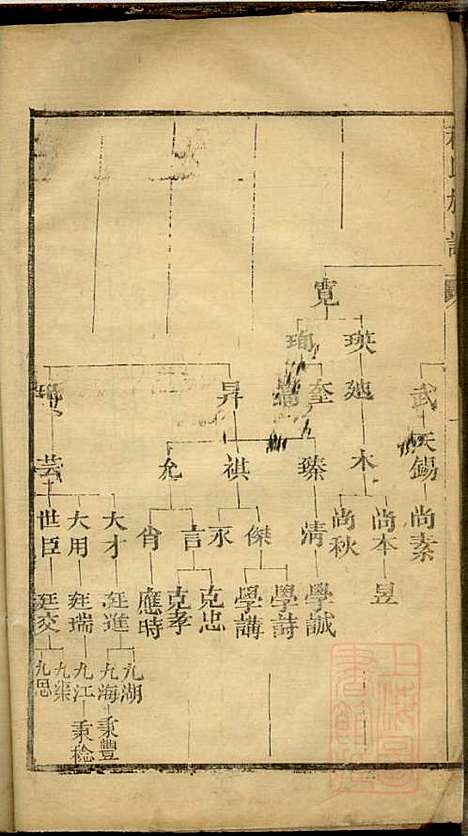 武 天錫 尚素
寬
瑛 廸 木
尚本 昱
尚秋
珣
奎
昇
臻 清 學誠
祺
傑
學詩
學講
永
允
言
克忠
克孝
肖 應時
芸
大才 廷進
九湖
九海 秉豐
大用 廷瑞
九江 秉稔
世臣 廷交
九渠
九思